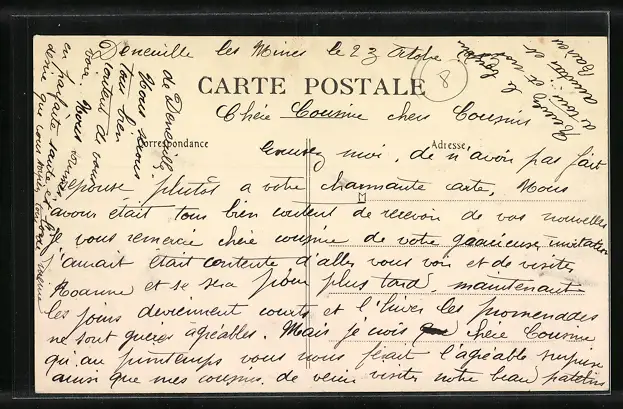 Deneuille les Mines le 23 Octobre
8
CARTE POSTALE
Chère Cousine chers Cousins
Correspondance
Adresse
Excusez moi, de n'avoir pas fait
réponse plutôt a votre charmante carte, Nous
avons était tous bien content de recevoir de vos nouvelles
Je vous remercie chère cousine de votre gracieuse invitation
j'aurait était contente d'aller vous voir et de visiter
Roanne et se sera pour plus tard, maintenant
les jours deviennent courts et l'hiver les promenades
ne sont guères agréables. Mais je crois que chère Cousine
qu'au printemps vous nous ferait l'agréable surprise
ainsi que mes cousins, de venir visiter notre beau patelin
de Deneuille
Nous serons
tous bien
content de vous
voir. Nous sommes
en parfaite santé et
désire que vous soyez tous de même